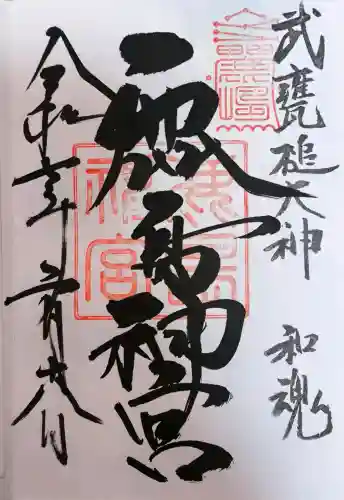 武甕槌大神 和魂
鹿島神宮
令和年月八日
鹿島
神宮